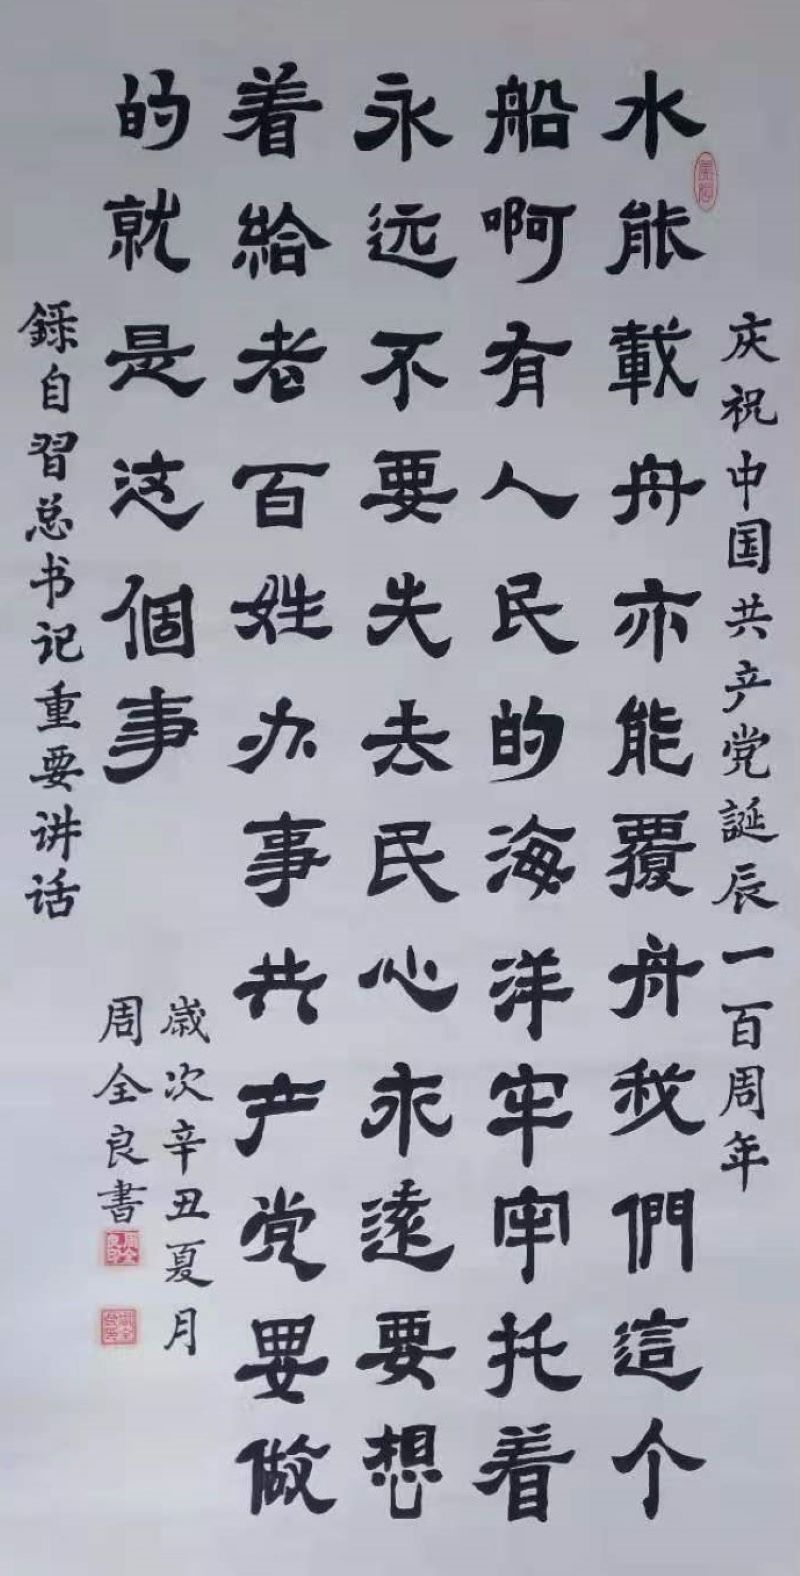 庆祝中国共产党誕辰一百周年
水能載舟亦能覆舟我們這个
船啊有人民的海洋牢牢托着
永远不要失去民心永遠要想
着給老百姓办事共产党要做
的就是这個事
錄自習总书记重要讲话
歲次辛丑夏月
周全良書